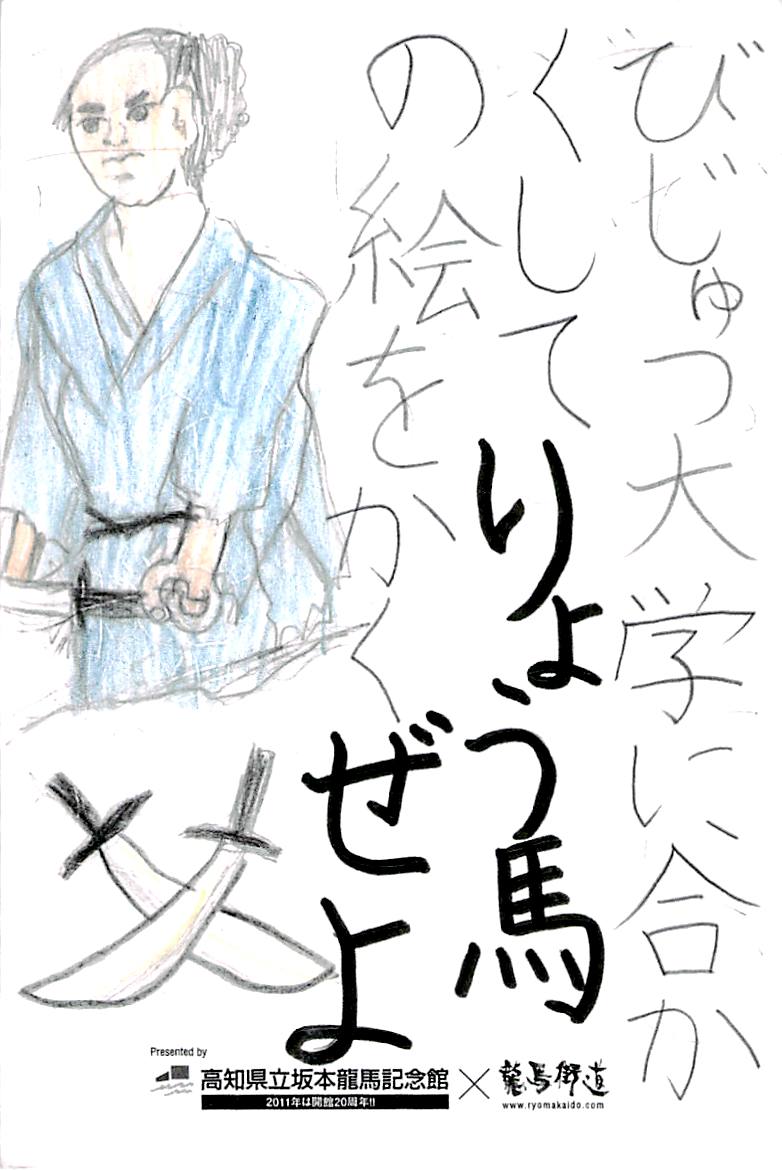 びじゅつ大学に合か
くしてりょう馬
の絵をかくぜよ
Presented by
高知県立坂本龍馬記念館
2011年は開館20周年!!
×
龍馬街道
www.ryomakaido.com